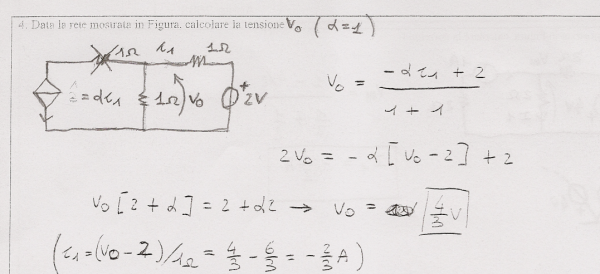 4. Data la rete mostrata in Figura, calcolare la tensione V₀ (α=1)
1Ω i₁ 1Ω
= αi₁ 1Ω V₀ + 2V
V₀ = (-αi₁ + 2) / (1 + 1)
2V₀ = -α[V₀ - 2] + 2
V₀[2 + α] = 2 + α2 → V₀ = 4/3 V
(i₁ = (V₀ - 2)/1Ω = 4/3 - 6/3 = -2/3 A)